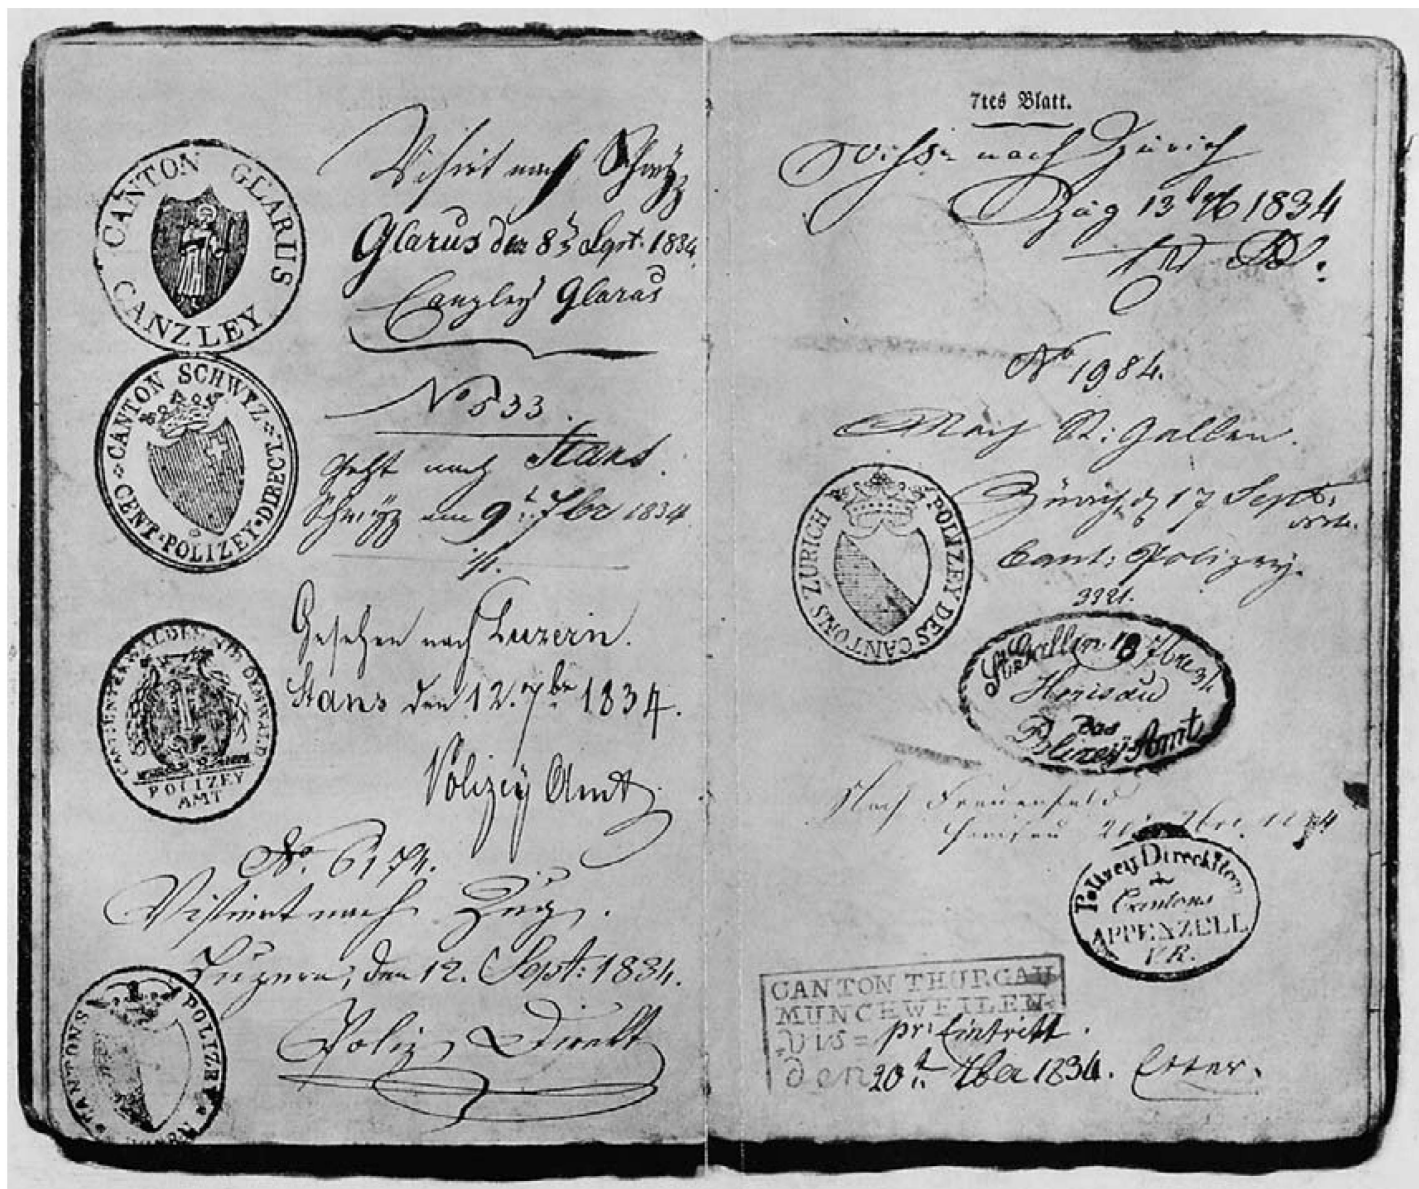 CANTON GLARUS
CANZLEY
Visirt nach Schwÿz
Glarus den 8t Sept. 1834
Canzley Glarus
CANTON SCHWYZ
CENT. POLIZEY. DIRECT.
No 533.
geht nach Stans.
Schwÿz am 9t 7br 1834
CANTON UNTERWALDEN NID DEM WALD
POLIZEY
AMT
Gesehen nach Luzern.
Stans den 12. 7br 1834.
Polizey Amt
No. 6174.
Visiert nach Zug.
Luzern, den 12. Sept: 1834.
Poliz Direkt
CANTONS
POLIZEY
7tes Blatt.
nach Zürich
Zug 13 7b 1834
No 1984.
Nach St: Gallen.
Zürich, d 17 Sept:
Cant: Polizey.
POLIZEY DES CANTONS ZÜRICH
3321.
St Gallen 18 7bre 34
Herisau
Das
Polizey-Amt
Nach Frauenfeld
Herisau
Polizey Direcktion
Cantons
APPENZELL
V.R.
CANTON THURGAU
MÜNCHWEILEN
Vis = pr: Eintritt.
den 20t 7ber 1834. Etter.